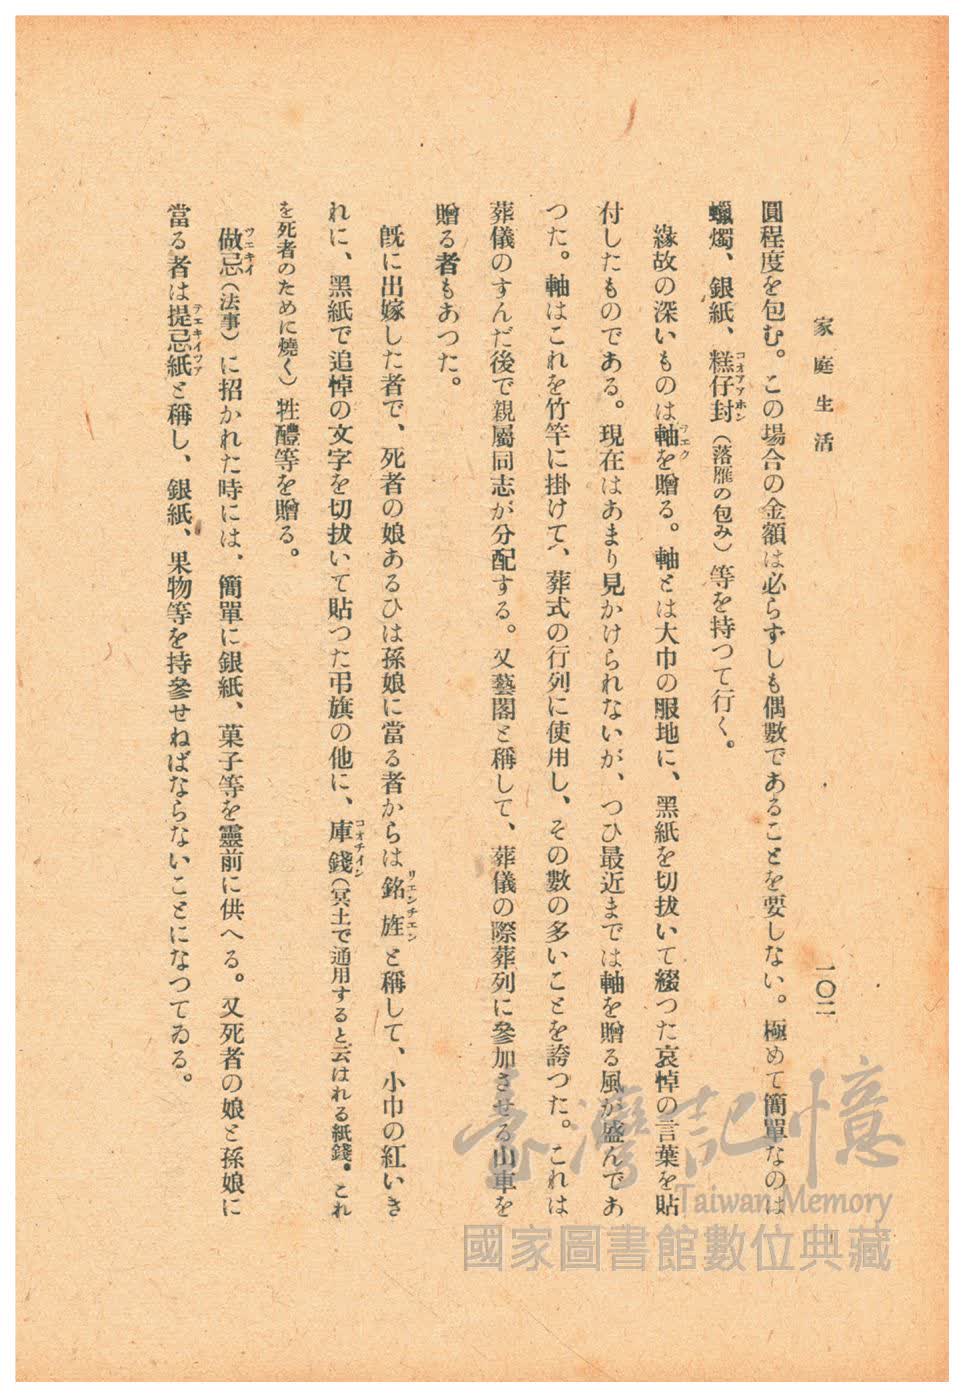 家庭生活
一〇二
圓程度を包む。この場合の金額は必らずしも偶數であることを要しない。極めて簡單なのは
蠟燭、銀紙、糕仔封（落雁の包み）等を持つて行く。
コオアアホン
緣故の深いものは軸を贈る。軸とは大巾の服地に、黑紙を切拔いて綴つた哀悼の言葉を貼
ヲエク
付したものである。現在はあまり見かけられないが、つひ最近までは軸を贈る風が盛んであ
つた。軸はこれを竹竿に掛けて、葬式の行列に使用し、その數の多いことを誇つた。これは
葬儀のすんだ後で親屬同志が分配する。又藝閣と稱して、葬儀の際葬列に參加させる山車を
贈る者もあつた。
既に出嫁した者で、死者の娘あるひは孫娘に當る者からは銘旌と稱して、小巾の紅いき
リエンチエン
れに、黑紙で追悼の文字を切拔いて貼つた弔旗の他に、庫錢（冥土で通用すると云はれる紙錢。これ
コオチイン
を死者のために燒く）牲醴等を贈る。
做忌（法事）に招かれた時には、簡單に銀紙、菓子等を靈前に供へる。又死者の娘と孫娘に
ツエキイ
當る者は提忌紙と稱し、銀紙、果物等を持參せねばならないことになつてゐる。
テエキイツア
臺灣記憶
Taiwan Memory
國家圖書館數位典藏